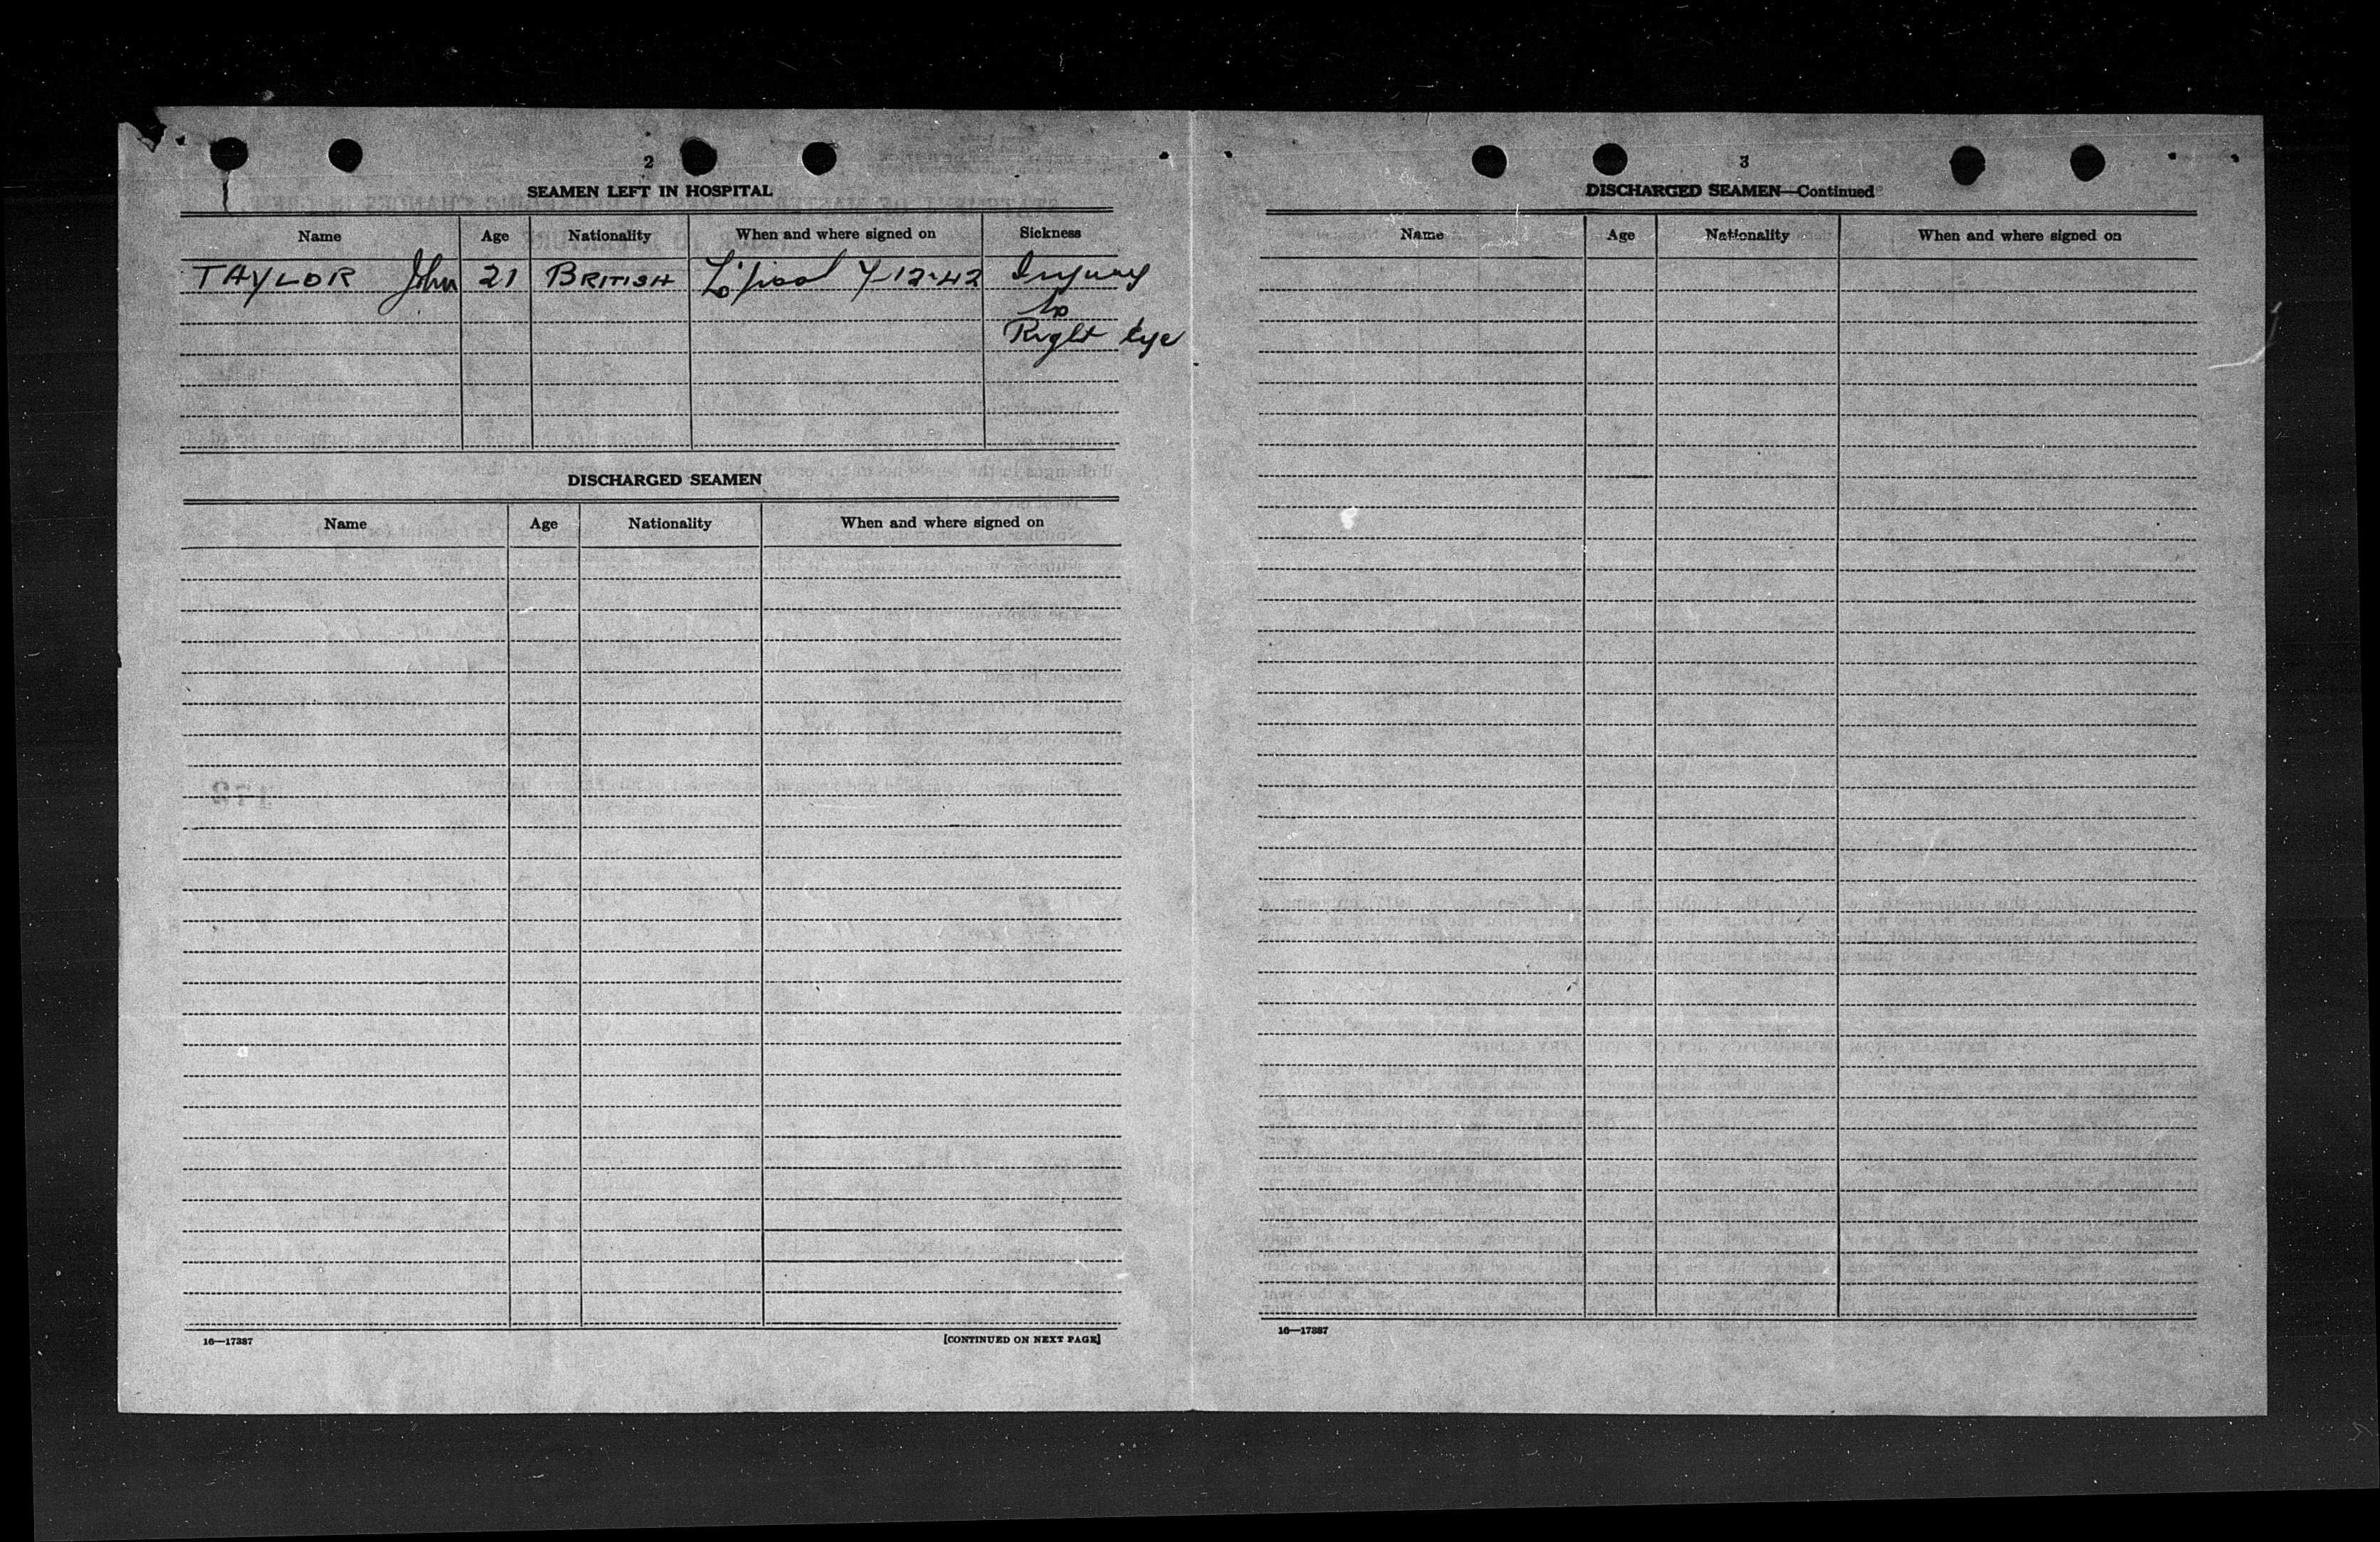 2
SEAMEN LEFT IN HOSPITAL
Name Age Nationality When and where signed on Sickness
TAYLOR John 21 BRITISH L'pool 7-12-42 Injury
to
Right Eye
DISCHARGED SEAMEN
Name Age Nationality When and where signed on
16—17387
[CONTINUED ON NEXT PAGE]
3
DISCHARGED SEAMEN—Continued
Name Age Nationality When and where signed on
16—17387